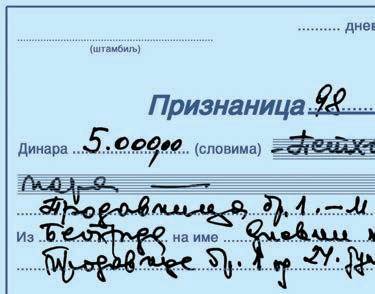 дне
(штамбиљ)
Признаница 98
Динара 5.000,00 (словима) -Петх
пара —
Продавница, бр. 1. - М
Из Београда на име Дневни
Продавнице бр. 1 од 24.